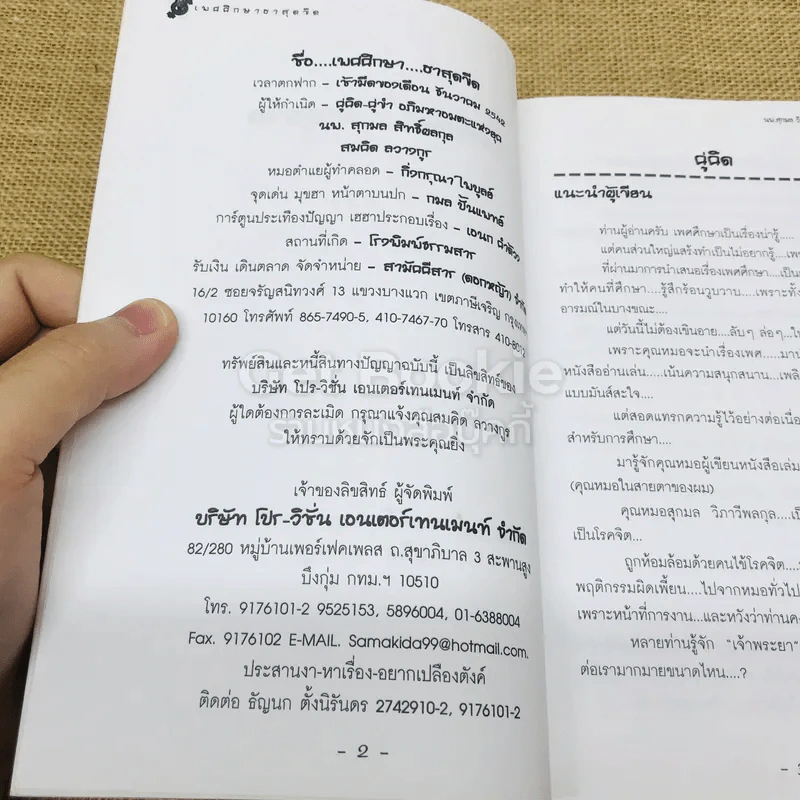 เพศศึกษาฮาสุดขีด
ชื่อ....เพศศึกษา....ฮาสุดขีด
เวลาตกฟาก - เช้ามืดของเดือน ธันวาคม 2542
ผู้ให้กำเนิด - คู่คิด-คู่ขำ อภิมหาอมตะแห่งยุค
นพ. สุกมล
สมคิด ลวางกูร
หมอตำแยผู้ทำคลอด - กิ่งกรุณา ไพบูลย์
จุดเด่น มุขฮา หน้าตาบนปก - กมล ปั้นแพทย์
การ์ตูนประเทืองปัญญา เฮฮาประกอบเรื่อง - เอนก
สถานที่เกิด - โรงพิมพ์ธรรมสาร
รับเงิน เดินตลาด จัดจำหน่าย - สามัคคีสาร (ดอกหญ้า) จำกัด
16/2 ซอยจรัญสนิทวงศ์ 13 แขวงบางแวก เขตภาษีเจริญ กรุงเทพฯ
10160 โทรศัพท์ 865-7490-5, 410-7467-70 โทรสาร 410-8012
ทรัพย์สินและหนี้สินทางปัญญาฉบับนี้ เป็นลิขสิทธ์ของ
บริษัท โปร-วิชั่น เอนเตอร์เทนเมนท์ จำกัด
ผู้ใดต้องการละเมิด กรุณาแจ้งคุณสมคิด ลวางกูร
ให้ทราบด้วยจักเป็นพระคุณยิ่ง
Get Bookie
ร้านหนังสือบุ๊คกี้
เจ้าของลิขสิทธ์ ผู้จัดพิมพ์
บริษัท โปร-วิชั่น เอนเตอร์เทนเมนท์ จำกัด
82/280 หมู่บ้านเพอร์เฟคเพลส ถ.สุขาภิบาล 3 สะพานสูง
บึงกุ่ม กทม.ฯ 10510
โทร. 9176101-2 9525153, 5896004, 01-6388004
Fax. 9176102 E-MAIL. Samakida99@hotmail.com.
ประสานงา-หาเรื่อง-อยากเปลืองตังค์
ติดต่อ ธัญนก ตั้งนิรันดร 2742910-2, 9176101-2
- 2 -
นพ.สุกมล
คู่คิด
แนะนำผู้เขียน
ท่านผู้อ่านครับ เพศศึกษาเป็นเรื่องน่ารู้....
แต่คนส่วนใหญ่แสร้งทำเป็นไม่อยากรู้....
ที่ผ่านมาการนำเสนอเรื่องเพศศึกษา....
ทำให้คนที่ศึกษา....รู้สึกร้อนวูบวาบ....เพราะทั้ง
อารมณ์ในบางขณะ....
แต่วันนี้ไม่ต้องเขินอาย....ลับๆ ล่อๆ...
เพราะคุณหมอจะนำเรื่องเพศ....มา
หนังสืออ่านเล่น....เน้นความสนุกสนาน....
แบบมันส์สะใจ....
แต่สอดแทรกความรู้ไว้อย่างต่อเนื่อง
สำหรับการศึกษา....
มารู้จักคุณหมอผู้เขียนหนังสือเล่ม
(คุณหมอในสายตาของผม)
คุณหมอสุกมล วิภาวีพลกุล....
เป็นโรคจิต...
ถูกห้อมล้อมด้วยคนไข้โรคจิต....
พฤติกรรมผิดเพี้ยน....ไปจากหมอทั่วไป
เพราะหน้าที่การงาน...และหวังว่าท่านคง
หลายท่านรู้จัก "เจ้าพระยา"
ต่อเรามากมายขนาดไหน....?